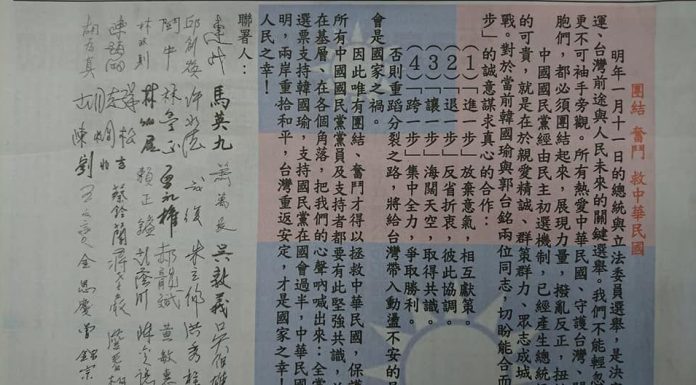 團結 奮鬥 救中華民國
明年一月十一日的總統與立法委員選舉，是決
運、台灣前途與人民未來的關鍵選舉。我們不能輕忽
更不可袖手旁觀。所有熱愛中華民國、守護台灣、關
胞們，都必須團結起來，展現力量，撥亂反正，扭
中國國民黨經由民主初選機制，已經產生總統
的可貴，就是在於親愛精誠、群策群力、眾志成城
戰。對於當前韓國瑜與郭台銘兩位同志，切盼能合而
步」的誠意謀求真心的合作：
（1）「進一步」放棄意氣，相互獻策。
（2）「退一步」反省折衷，彼此協調。
（3）「讓一步」海闊天空，取得共識。
（4）「跨一步」集中全力，爭取勝利。
否則重蹈分裂之路，將給台灣帶入動盪不安的
會是國家之禍。
因此唯有團結、奮鬥才得以拯救中華民國，保護
所有中國國民黨黨員及支持者都要有此堅強共識，
在基層、在各個角落，把我們的心聲吶喊出來：全黨
選票支持韓國瑜，支持國民黨在國會過半，中華民國
明，兩岸重拾和平，台灣重返安定，才是國家之幸！
人民之幸！
聯署人：
連戰 馬英九 蕭萬長 吳敦義 吳伯雄
邱創煥 許水德 朱立倫 洪秀柱
林豐正 曾永權 郝龍斌 黃敏惠
林政則 賴正鎰
陳鎮湘 蔡鈴蘭
胡有真 陳 劉 金恩慶 曾銘宗